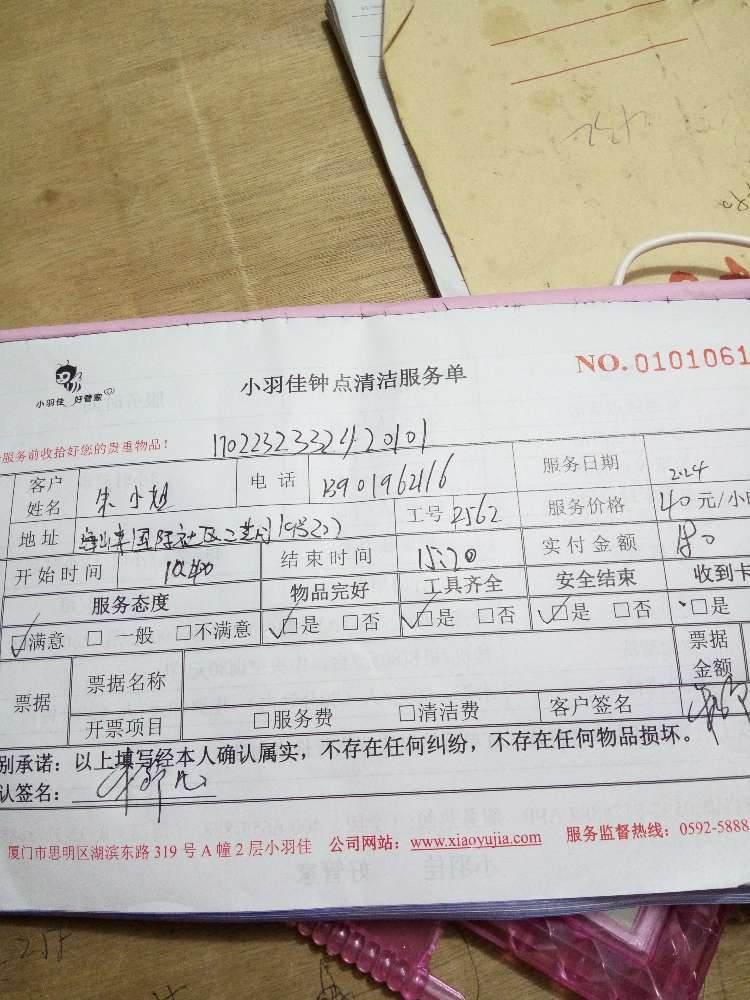 小羽佳 好管家
小羽佳钟点清洁服务单
NO.0101061
服务前收拾好您的贵重物品！
17022323324.20101
客户姓名 朱小姐 电话 13901962116 服务日期 2.24
地址 国际社区 工号 2562 服务价格 40元/小
开始时间 结束时间 15:20 实付金额 180
服务态度 物品完好 工具齐全 安全结束 收到卡
☑满意 □一般 □不满意 ☑是 □否 ☑是 □否 ☑是 □否 □是
票据 票据名称 票据金额
开票项目 □服务费 □清洁费 客户签名
别承诺：以上填写经本人确认属实，不存在任何纠纷，不存在任何物品损坏。
认签名：
厦门市思明区湖滨东路 319 号 A 幢 2 层小羽佳 公司网站：www.xiaoyujia.com 服务监督热线：0592-5888